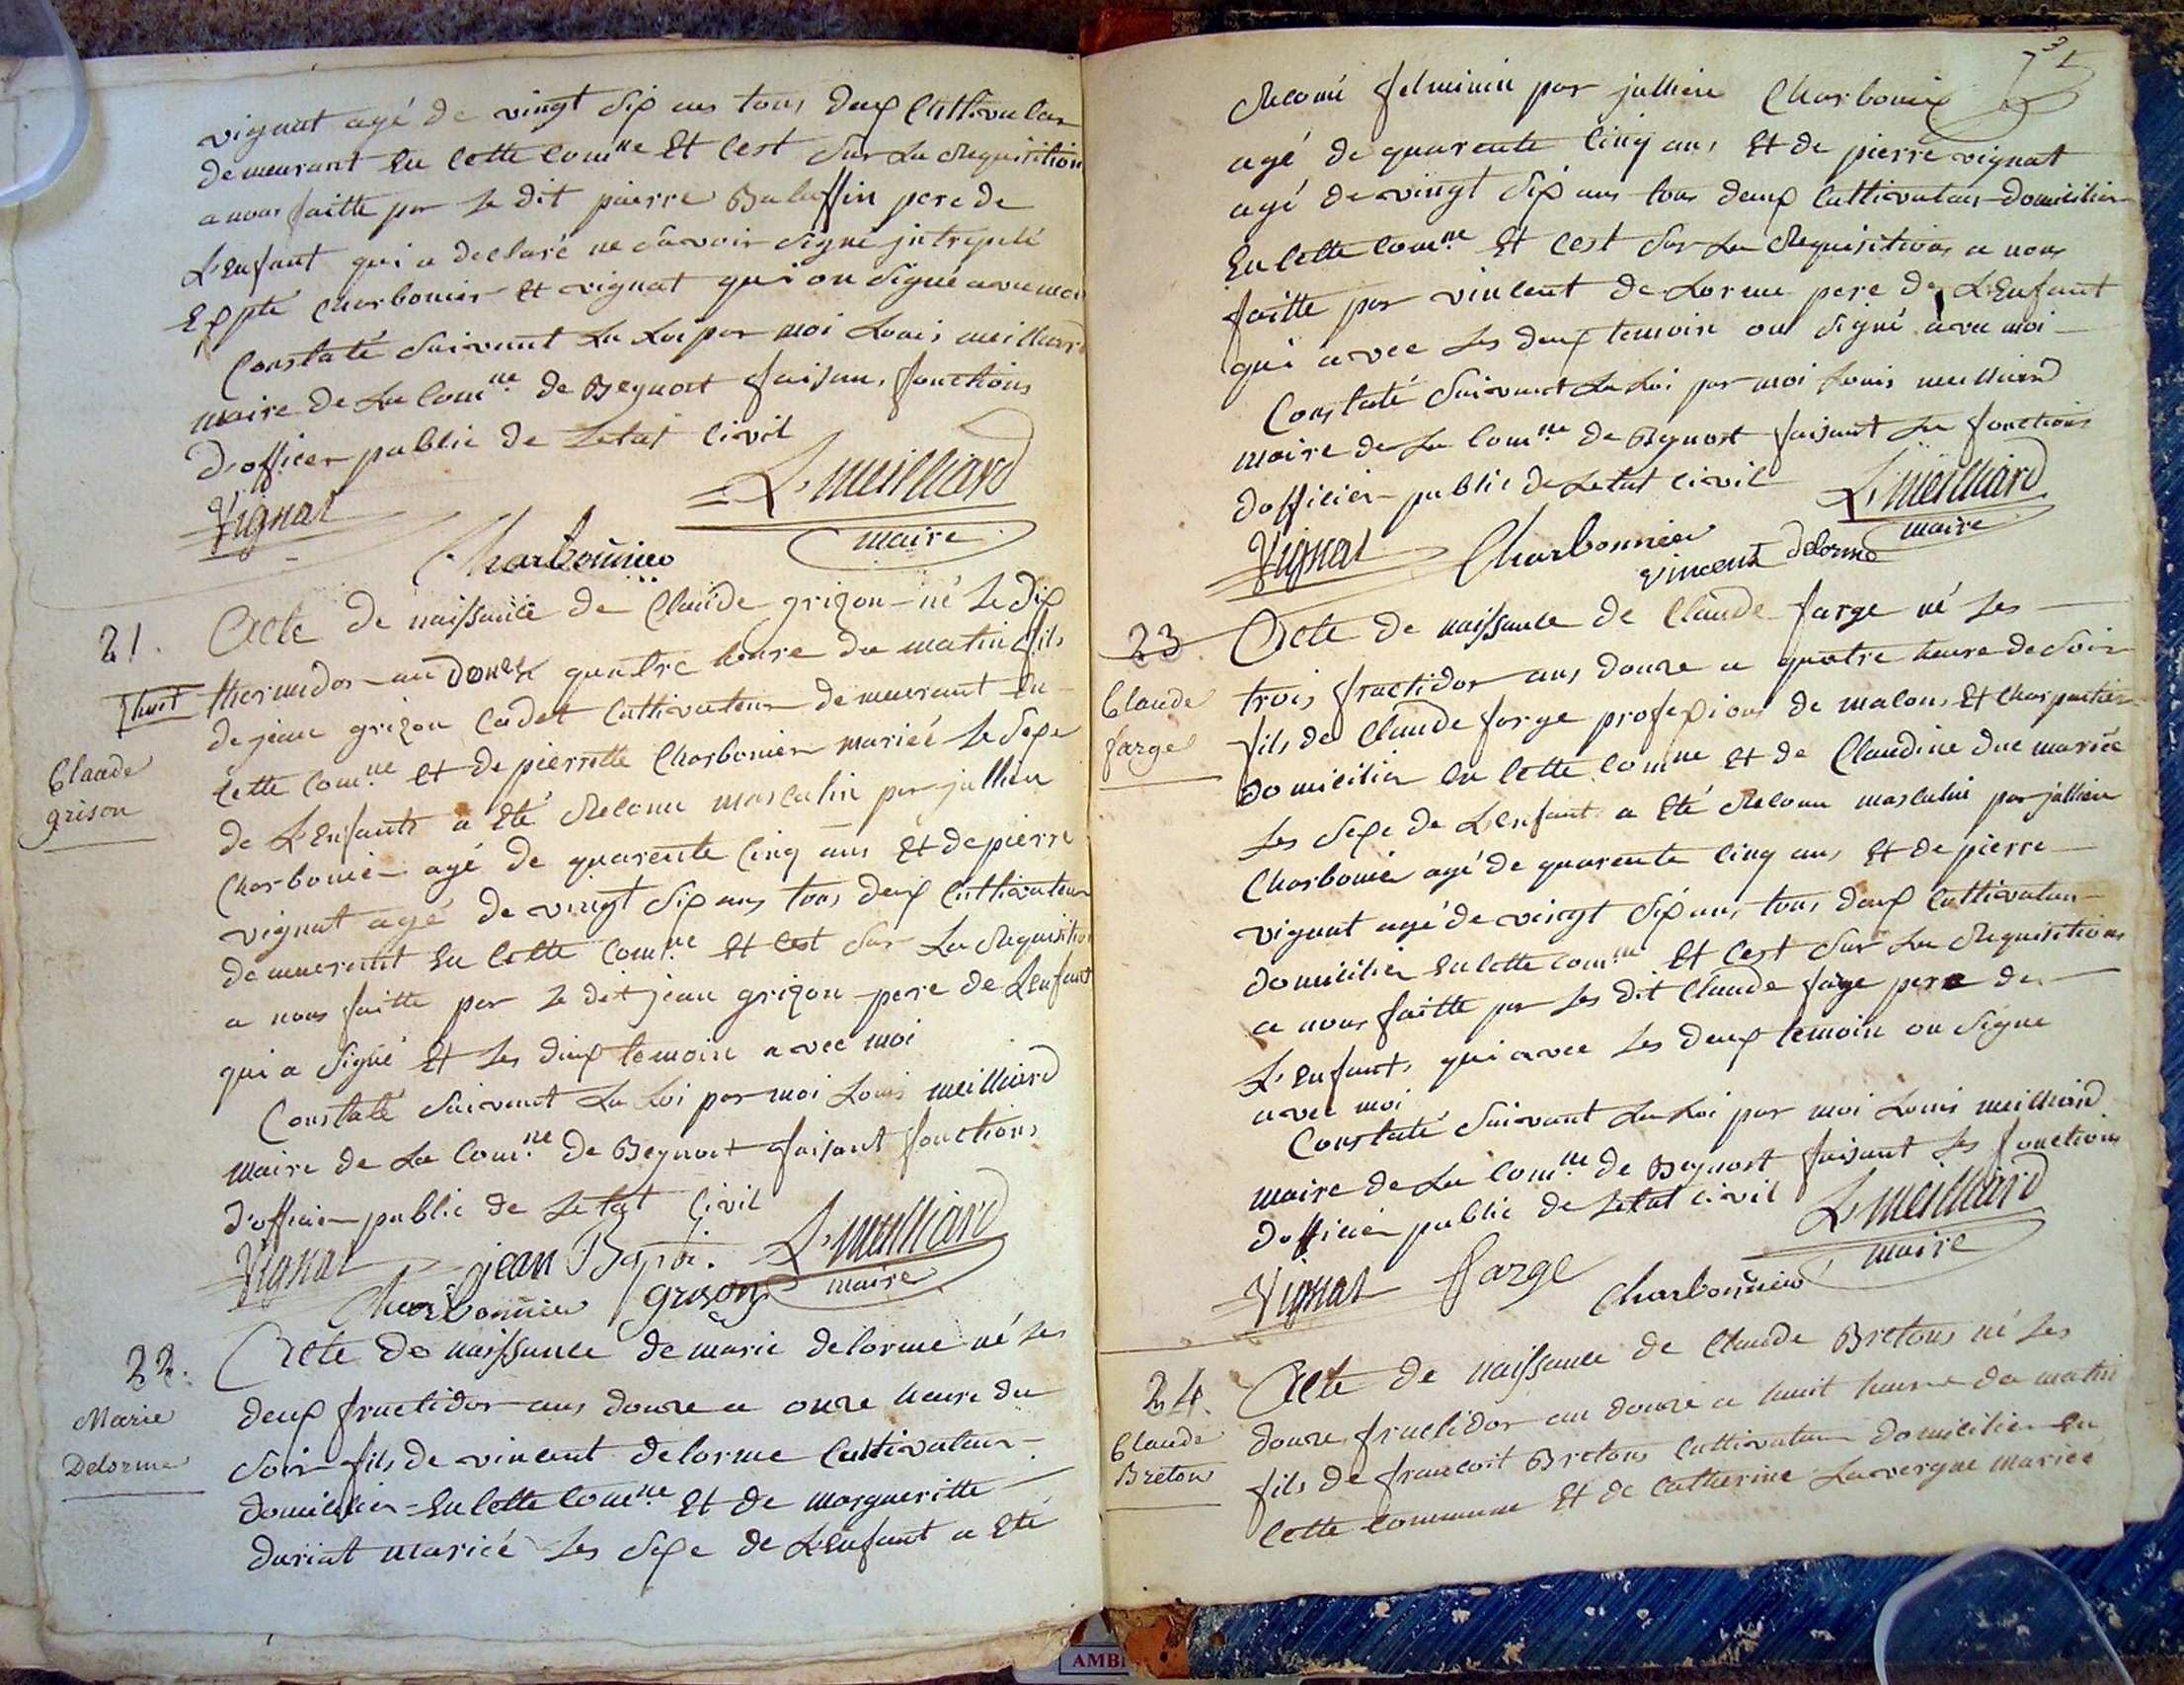 vignat agé de vingt Six ans tous deux Cultivateur
demeurant En Cette Comne Et Cest Sur La Requisition
a nous faitte par Le dit pierre Balaffin pere de
L'Enfant qui a declaré ne Savoir Signé jntrepelé
Expte Charbonier Et vignat qui on Signé avec moi
Constaté Suivant La Loi par moi Louis meilliard
maire de La Comne de Beynost faisan, fonctions
D'officer public de Letat Civil
Vignat
L. Meilliard
maire
Charbonnier
21.
Acte de naissance de Claude grizon né Le dix
huit
thermidor an Douze quatre heure du matin fils
de jean grizon Cadet Cultivateur demeurant En
Claude
grison
Cette Comne Et de pierrette Charbonier mariéé Le Sexe
de L'Enfants a Eté Reconu masculin par jullien
Charbonier agé de quarente Cinq ans Et de pierre
vignat agé de vingt Six ans tous deux Cultivateur
demeurant En Cette Comne Et Cest Sur La Requisition
a nous faitte par Le dit jean grizon pere de L'enfant
qui a Signé Et Les deux temoin avec moi
Constaté Suivant La Loi par moi Louis meilliard
Maire de La Comne de Beynost faisant fonctions
D'officier public de Letat Civil
Vignat
jean Bapti.
L. Meilliard
Charbonnier
grison
maire
22.
Acte De naissance de marie delorme né Les
Marie
Delorme
deux fructidor ans douze a onze heure du
Soir fils de vincent delorme Cultivateur
domicilier En Cette Comne Et de margueritte
duriat mariéé Les Sexe de L'Enfant a Eté
Reconu felminin par jullien Charbonier
agé de quarente Cinq ans Et de pierre vignat
agé de vingt Six ans tous deux Cultivateur domicilier
En Cette Comne Et Cest Sur La Requisitions a nous
faitte par vincent de Lorme pere de L'Enfant
qui avec Les deux temoin on Signé avec moi
Constaté Suivant La Loi par moi Louis meilliard
maire de La Comne de Beynost faisant Les fonctions
dofficier public de Letat Civil
L. Meilliard
maire
Vignat
Charbonnier
vincent delorme
23
Acte de naissance de Claude farge né Les
Claude
farge
trois fructidor ans douze a quatre heure de Soir
fils de Claude farge profexions de macons Et Charpentier
domicilier En Cette Comne Et de Claudine due mariée
Les Sexe de L'enfant a Eté Reconu masculin par jullien
Charbonier agé de quarente Cinq ans Et de pierre
vignat agé de vingt Six ans tous deux Cultivateur
domicilier En Cette Comne Et Cest Sur La Requisitions
a nous faitte par Les dit Claude farge pere de
L'Enfants qui avec Les deux temoin on Signe
avec moi
Constaté Suivant La Loi par moi Louis meilliard
maire de La Comne de Beynost faisant Les fonctions
dofficier public de Letat Civil
L. Meilliard
maire
Vignat
farge
Charbonnier
24.
Acte de naissance de Claude Bretons né Les
Claude
Breton
douze fructidor an douze a huit heure du matin
fils de francoit Bretons Cultivateur domicilier En
Cette Commune Et de Catherine Lavergne mariée
AMB